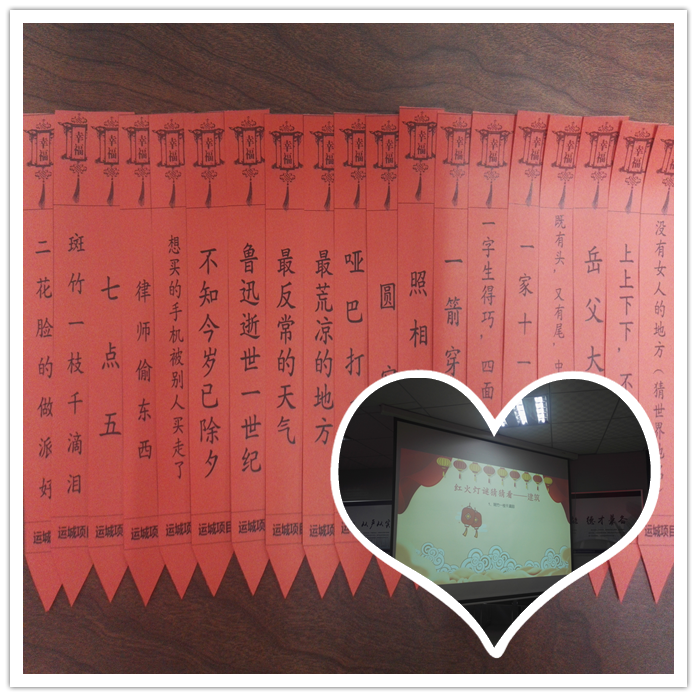 幸福
二花脸的做派好
运城项目
幸福
斑竹一枝千滴泪
运城项
幸福
七点五
运城项
幸福
律师偷东西
运城项
幸福
想买的手机被别人买走了
运城项
幸福
不知今岁已除夕
运城项目
幸福
鲁迅逝世一世纪
运城项目
幸福
最反常的天气
运城项目
幸福
最荒凉的地方
运城项
幸福
哑巴打
幸福
圆
幸福
照相
幸福
一箭穿
幸福
一字生得巧，四面
幸福
一家十一
幸福
既有头，又有尾，中
幸福
岳父大
幸福
上上下下，不
幸福
没有女人的地方（猜世界
红火灯谜猜猜
德才兼备